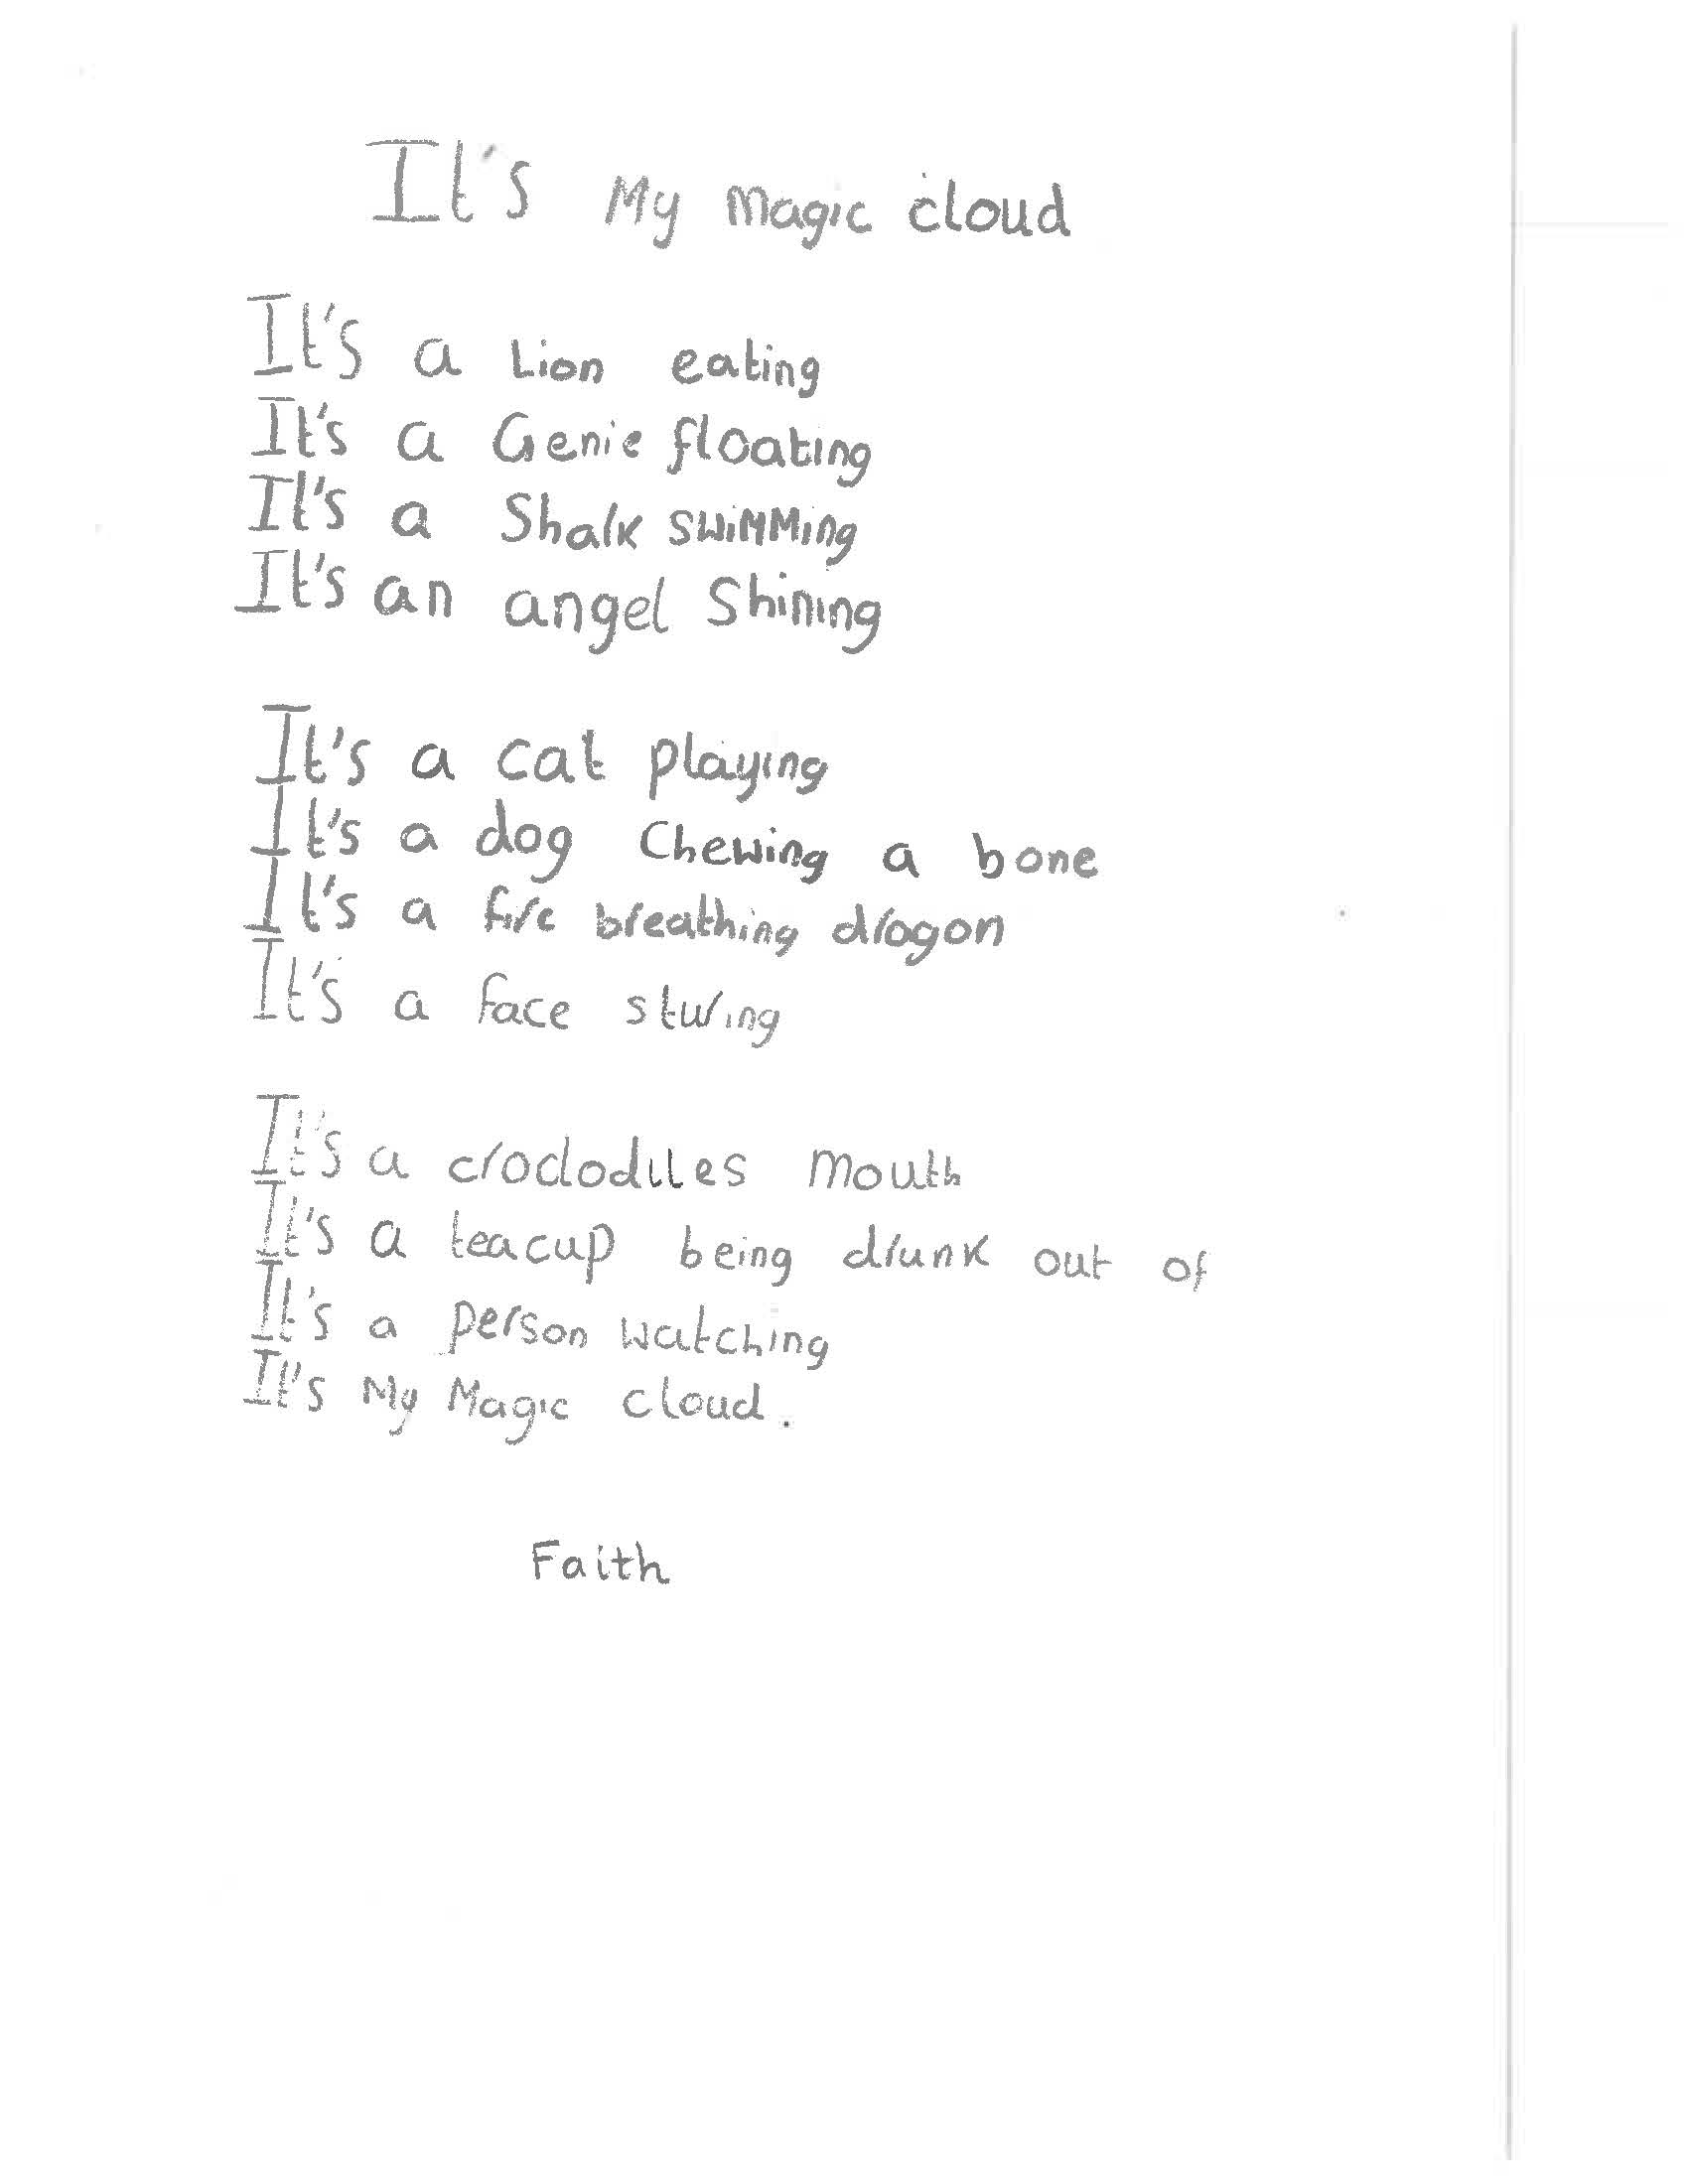 It's My Magic cloud
It's a Lion eating
It's a Genie floating
It's a Shark swimming
It's an angel Shining
It's a cat playing
It's a dog Chewing a bone
It's a fire breathing dragon
It's a face staring
It's a croclodiles mouth
It's a teacup being drunk out of
It's a person watching
It's My Magic cloud.
Faith